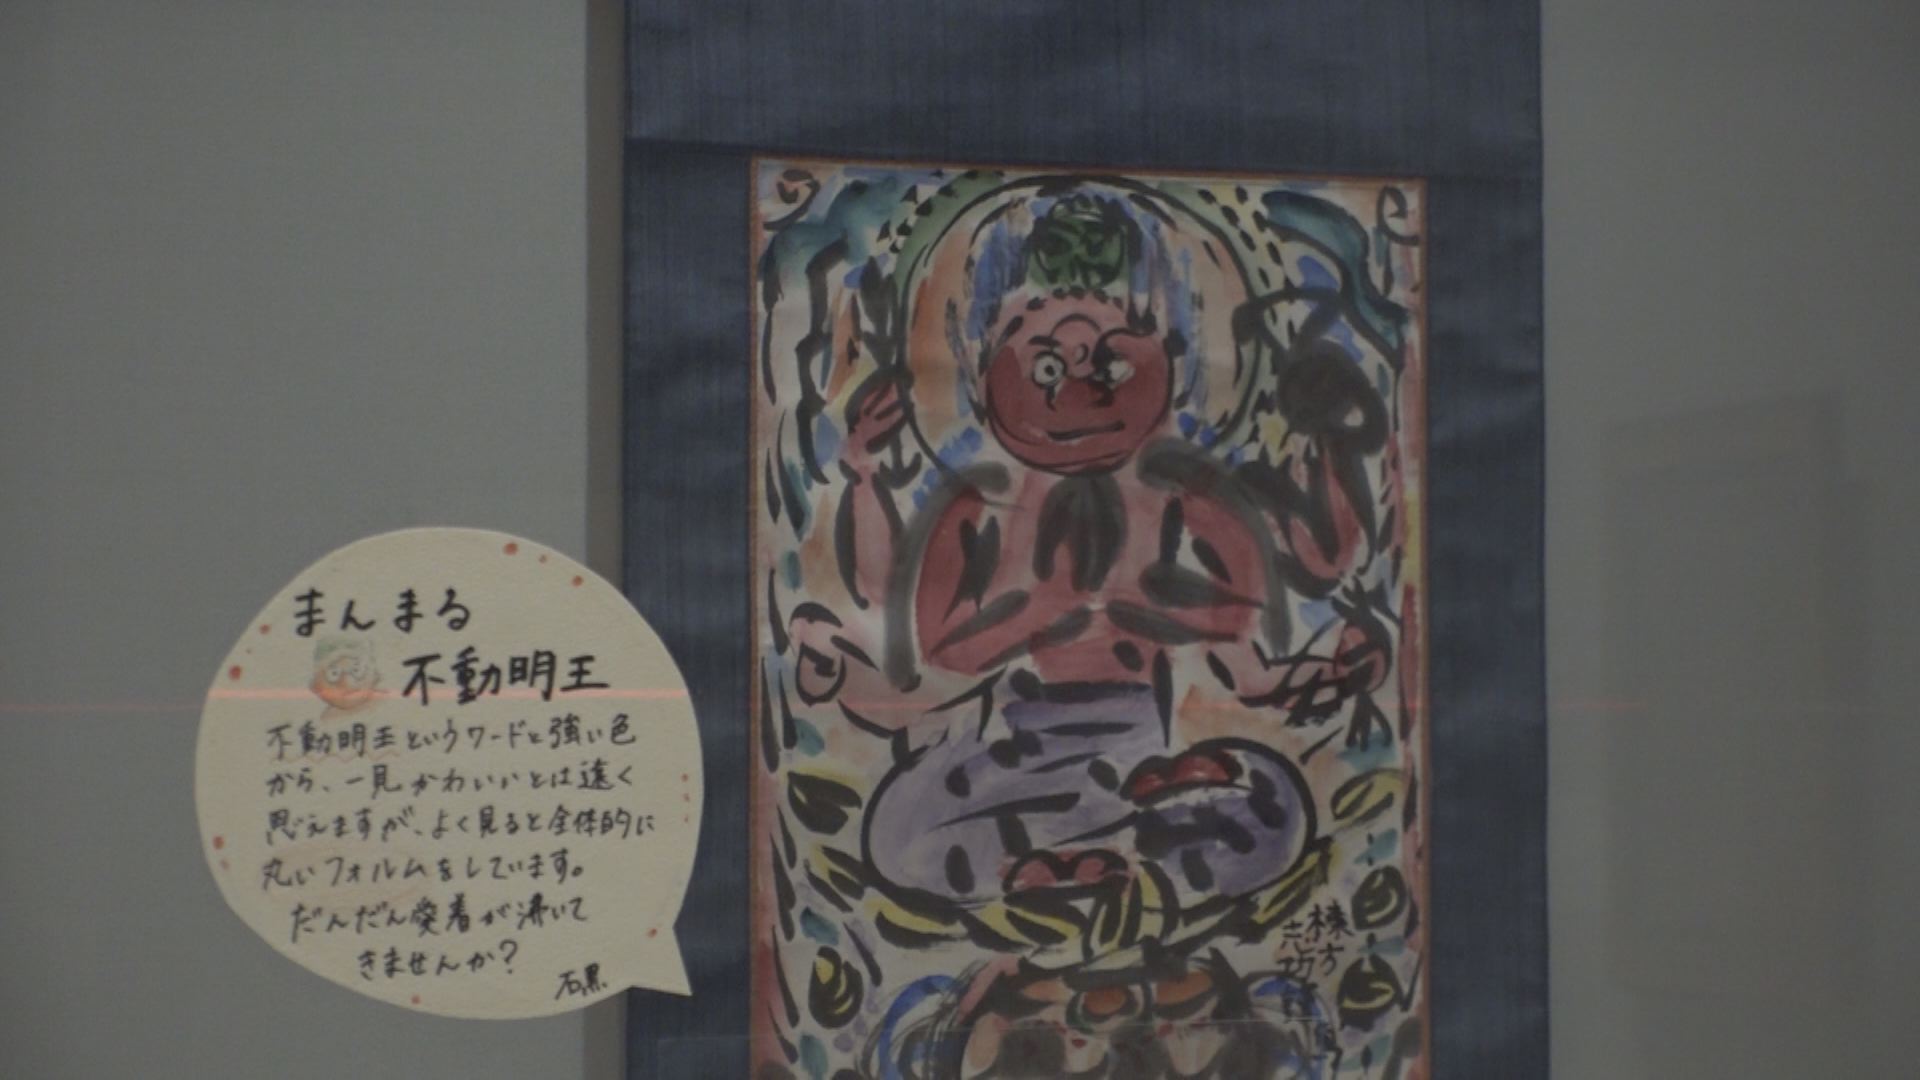 まんまる
不動明王
不動明王というワードと強い色
から、一見かわいいとは遠く
思えますが、よく見ると全体的に
丸いフォルムをしています。
だんだん愛着が沸いて
きませんか?
石黒
棟方
志功